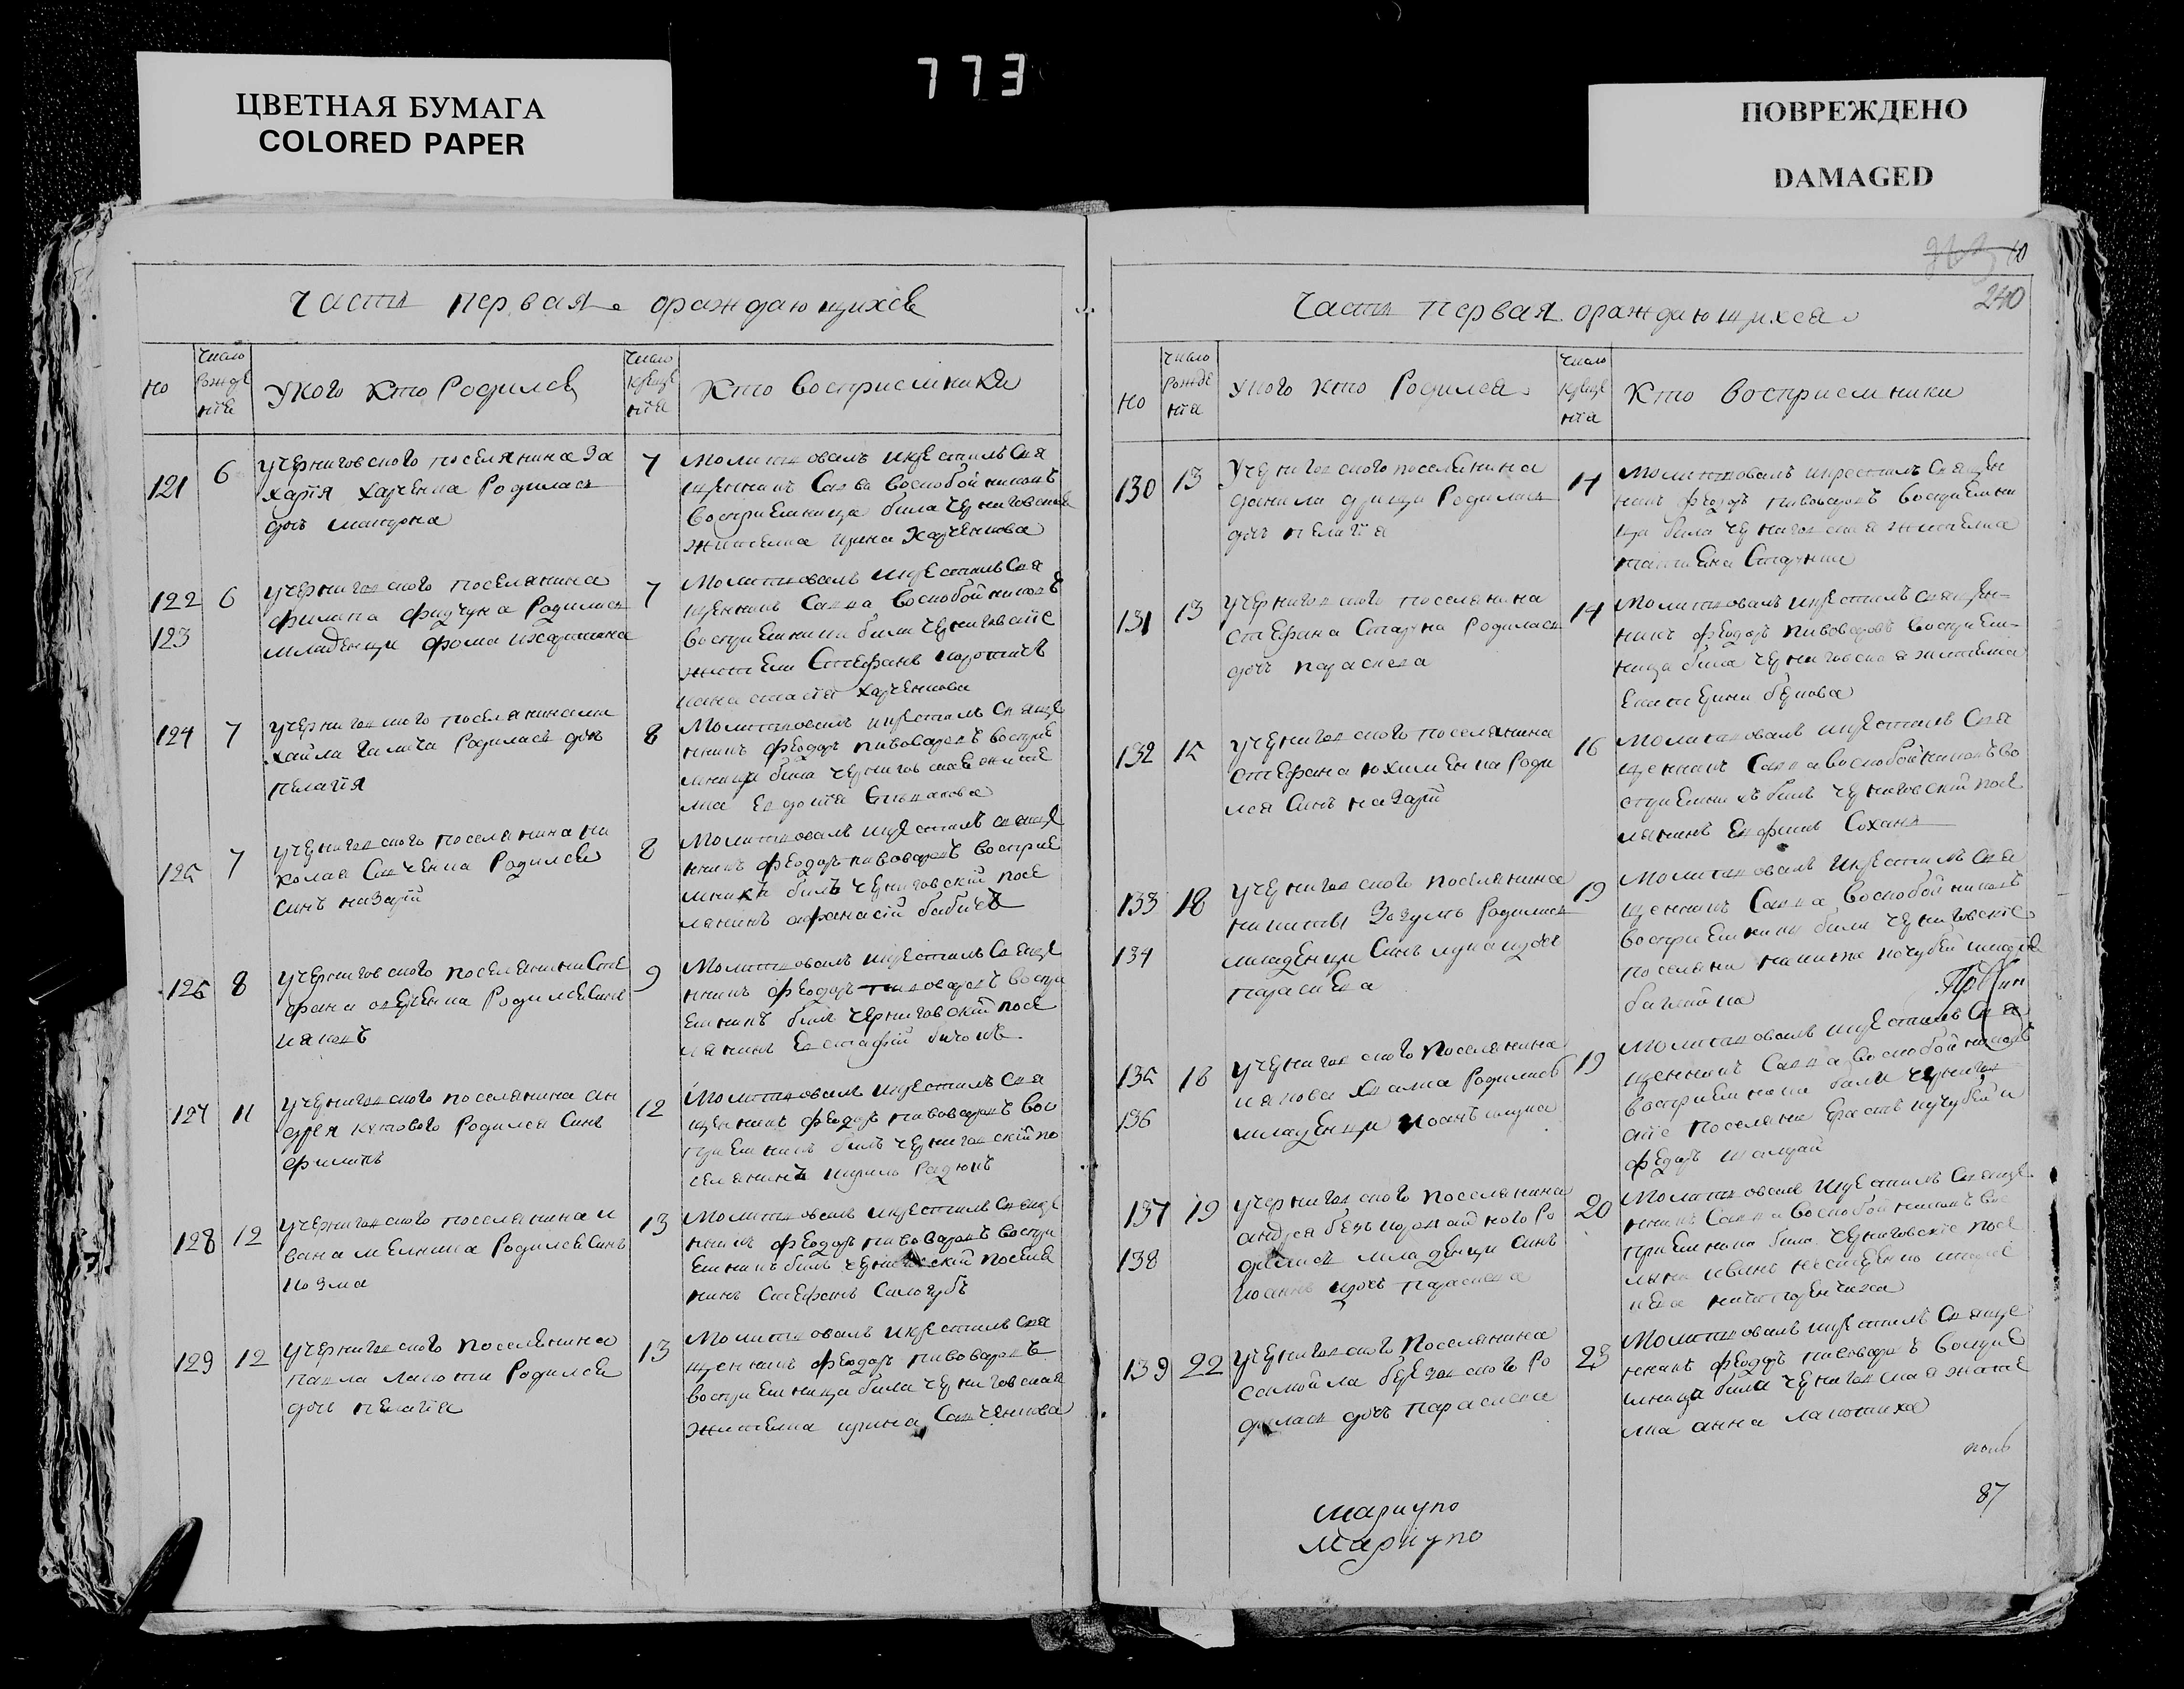 773
ЦВЕТНАЯ БУМАГА
COLORED PAPER
ПОВРЕЖДЕНО
DAMAGED
10
240
Часть первая ораждающихся
но
число рожде нія
У кого кто родился
число креще нія
Кто восприемники
121
6
Учерниговского поселянина За
харія Харченка Родилась
дочь матрона
7
Молитвовалъ икрестилъ Свя
щенникъ Савва Воскобойниковъ
восприемница била Черниговская
жителка ирина Харченкова
122
123
6
Учерниговского поселянина
филипа Родились
младенци фома
7
Молитвовалъ икрестилъ Свя
щенникъ Савва Воскобойниковъ
восприемники били Черниговскіе
жители Стефанъ
харченкова
124
7
Учерниговского поселянина ми
хайла Галича Родилась дочь
пелагія
8
Молитвовалъ икрестилъ Свяще
нникъ феодоръ пивоваровъ воспріе
мница била Черниговская жите
лка Евдокія
125
7
Учерниговского поселянина ни
колая Савченка Родился
Синъ назарій
8
Молитвовалъ икрестилъ Свяще
нникъ феодоръ пивоваровъ восприе
мникъ билъ Черниговскій посе
лянинъ афанасій бабичъ
126
8
Учерниговского поселянина Сте
фана Родился Синъ
ияковъ
9
Молитвовалъ икрестилъ Свяще
нникъ феодоръ пивоваровъ воспри
емникъ билъ Черниговскій посе
лянинъ Евстафій
127
11
Учерниговского поселянина ан
дрея кутового Родился Синъ
филипъ
12
Молитвовалъ икрестилъ Свя
щенникъ феодоръ пивоваровъ вос
приемникъ билъ Черниговскій по
селянинъ кирило Радюкъ
128
12
Учерниговского поселянина и
вана мелника Родился Синъ
козма
13
Молитвовалъ икрестилъ Свяще
нникъ феодоръ пивоваровъ воспри
емникъ билъ Черниговскій поселя
нинъ Стефанъ Салогубъ
129
12
Учерниговского поселянина
павла лапоти Родилась
дочь пелагія
13
Молитвовалъ икрестилъ Свя
щенникъ феодоръ пивоваровъ
восприемница била Черниговская
жителка ирина Савченкова
Часть первая ораждающихся
но
число рожде нія
У кого кто Родился
число креще нія
Кто восприемники
130
13
Учерниговского поселянина
данила Родилась
дочь пелагія
14
Молитвовалъ икрестилъ Священ
никъ феодоръ пивоваровъ восприемни
ца била Черниговская жителка
131
13
Учерниговского поселянина
Стефана Родилась
дочь параскева
14
Молитвовалъ икрестилъ Священ-
никъ феодоръ пивоваровъ восприем-
ница била Черниговская жителка
Екатерина
132
15
Учерниговского поселянина
Стефана юхименка Роди
лся Синъ назарій
16
Молитвовалъ икрестилъ Свя
щенникъ Савва Воскобойниковъ во
сприемникъ билъ Черниговскій посе
лянинъ Ефимъ Сохань
133
134
18
Учерниговского поселянина
никиты Зозулъ Родились
младенци Синъ лука идочь
параскева
19
Молитвовалъ икрестилъ Свя
щенникъ Савва Воскобойниковъ
восприемники били Черниговскіе
поселяни
135
136
18
Учерниговского поселянина
иякова Родились
младенци иоанъ илука
19
Молитвовалъ икрестилъ Свя
щенникъ Савва Воскобойниковъ
восприемники били Чернигов
скіе поселяни
федоръ
137
138
19
Учерниговского поселянина
андрея Ро
дились младенци Синъ
Иоаннъ идочь параскева
20
Молитвовалъ икрестилъ Свяще
нникъ Савва Воскобойниковъ вос
приемники били Черниговскіе посе
139
22
Учерниговского поселянина
Самойла березовского Ро
дилась дочь параскева
23
Молитвовалъ икрестилъ Свяще
нникъ феодоръ пивоваровъ восприе
мница била Черниговская жите
лка анна лапотиха
87
Мариупо
Мариупо